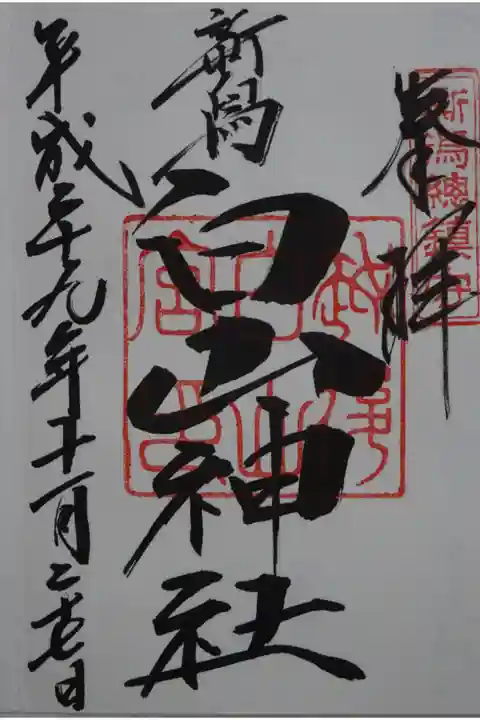 奉拝
新潟總鎮守
新潟
白山神社
平成二十九年十一月二十七日